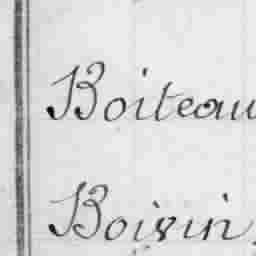 Boiteau
Boivin